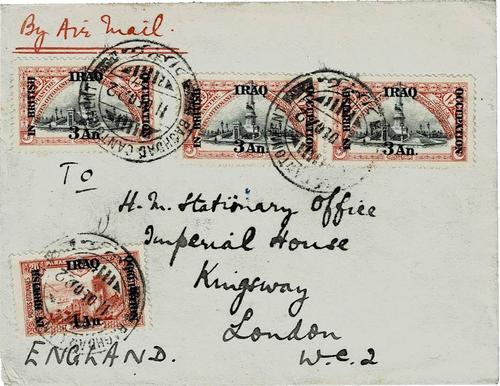 By Air Mail.
IRAQ IRAQ IRAQ
IN BRITISH OCCUPATION IN BRITISH OCCUPATION IN BRITISH OCCUPATION
3 An. 3 An. 3 An.
BAGHDAD CANTONMENT
To
H. M. Stationary Office
Imperial House
Kingsway
London
W.C. 2
IRAQ
IN BRITISH OCCUPATION
1 An.
ENGLAND.